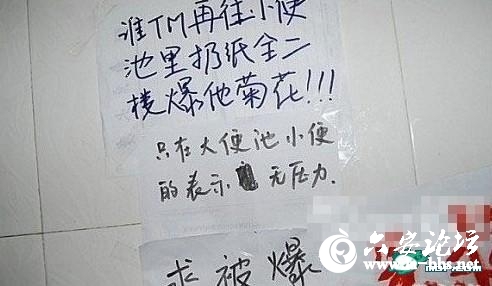 谁TM再往小便
池里扔纸全二
楼爆他菊花!!!
只在大便池小便
的表示 无压力.
求被爆
六安论坛